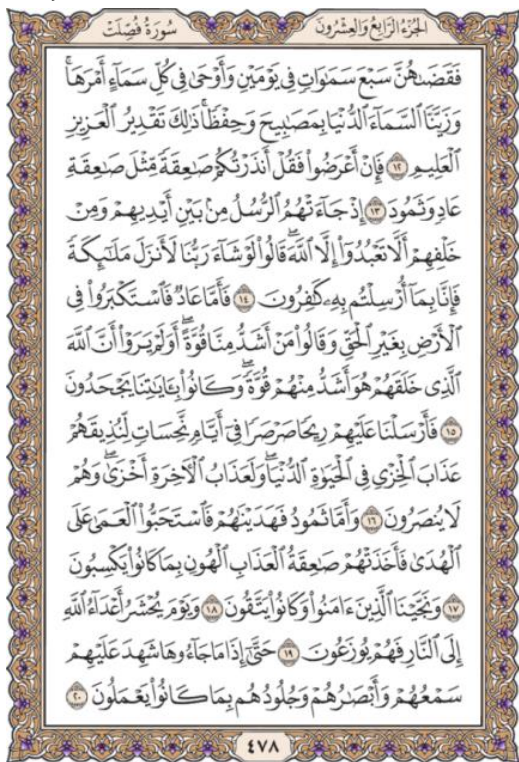 الجزء الرابع والعشرون
سورة فصلت
فَقَضَىٰهُنَّ سَبْعَ سَمَٰوَاتٍ فِى يَوْمَيْنِ وَأَوْحَىٰ فِى كُلِّ سَمَآءٍ أَمْرَهَا ۚ
وَزَيَّنَّا ٱلسَّمَآءَ ٱلدُّنْيَا بِمَصَٰبِيحَ وَحِفْظًا ۚ ذَٰلِكَ تَقْدِيرُ ٱلْعَزِيزِ
ٱلْعَلِيمِ ١٢ فَإِنْ أَعْرَضُوا۟ فَقُلْ أَنذَرْتُكُمْ صَٰعِقَةً مِّثْلَ صَٰعِقَةِ
عَادٍ وَثَمُودَ ١٣ إِذْ جَآءَتْهُمُ ٱلرُّسُلُ مِنۢ بَيْنِ أَيْدِيهِمْ وَمِنْ
خَلْفِهِمْ أَلَّا تَعْبُدُوٓا۟ إِلَّا ٱللَّهَ ۖ قَالُوا۟ لَوْ شَآءَ رَبُّنَا لَأَنزَلَ مَلَٰٓئِكَةً
فَإِنَّا بِمَآ أُرْسِلْتُم بِهِۦ كَٰفِرُونَ ١٤ فَأَمَّا عَادٌ فَٱسْتَكْبَرُوا۟ فِى
ٱلْأَرْضِ بِغَيْرِ ٱلْحَقِّ وَقَالُوا۟ مَنْ أَشَدُّ مِنَّا قُوَّةً ۖ أَوَلَمْ يَرَوْا۟ أَنَّ ٱللَّهَ
ٱلَّذِى خَلَقَهُمْ هُوَ أَشَدُّ مِنْهُمْ قُوَّةً ۖ وَكَانُوا۟ بِـَٔايَٰتِنَا يَجْحَدُونَ
١٥ فَأَرْسَلْنَا عَلَيْهِمْ رِيحًا صَرْصَرًا فِىٓ أَيَّامٍ نَّحِسَاتٍ لِّنُذِيقَهُمْ
عَذَابَ ٱلْخِزْىِ فِى ٱلْحَيَوٰةِ ٱلدُّنْيَا ۖ وَلَعَذَابُ ٱلْءَاخِرَةِ أَخْزَىٰ ۖ وَهُمْ
لَا يُنصَرُونَ ١٦ وَأَمَّا ثَمُودُ فَهَدَيْنَٰهُمْ فَٱسْتَحَبُّوا۟ ٱلْعَمَىٰ عَلَى
ٱلْهُدَىٰ فَأَخَذَتْهُمْ صَٰعِقَةُ ٱلْعَذَابِ ٱلْهُونِ بِمَا كَانُوا۟ يَكْسِبُونَ
١٧ وَنَجَّيْنَا ٱلَّذِينَ ءَامَنُوا۟ وَكَانُوا۟ يَتَّقُونَ ١٨ وَيَوْمَ يُحْشَرُ أَعْدَآءُ ٱللَّهِ
إِلَى ٱلنَّارِ فَهُمْ يُوزَعُونَ ١٩ حَتَّىٰٓ إِذَا مَا جَآءُوهَا شَهِدَ عَلَيْهِمْ
سَمْعُهُمْ وَأَبْصَٰرُهُمْ وَجُلُودُهُم بِمَا كَانُوا۟ يَعْمَلُونَ ٢٠
٤٧٨